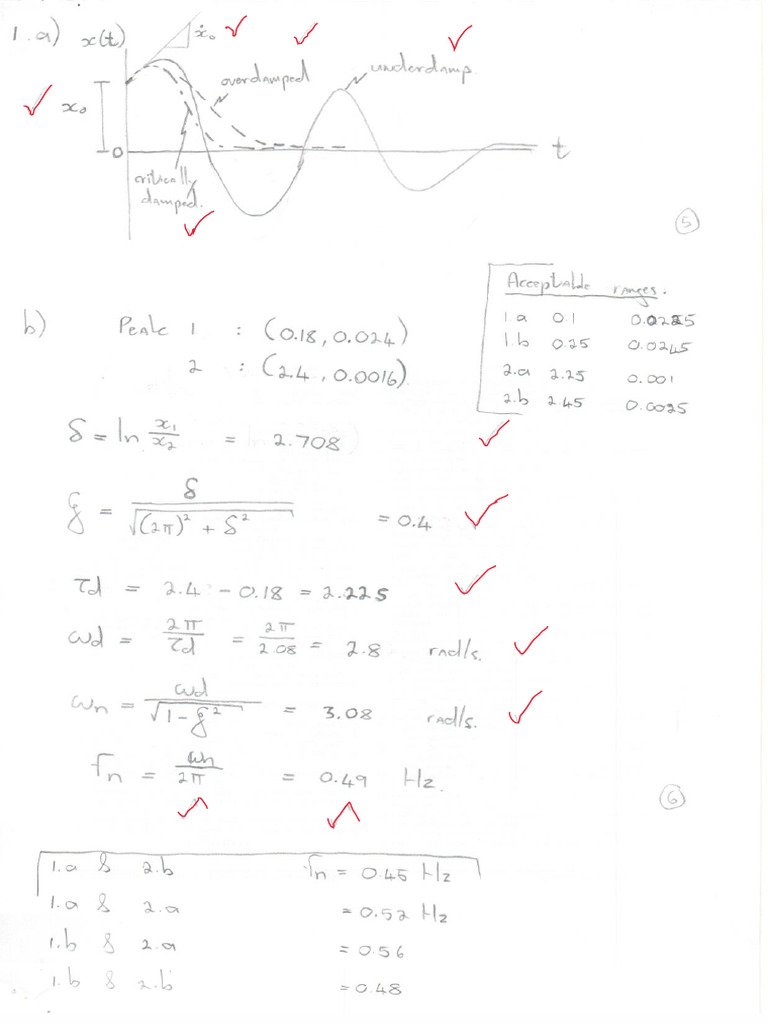 1.a) x(t) ẋ₀
overdamped underdamp.
x₀
0 t
critically
damped.
5
Acceptable ranges.
1.a 0.1 0.0225
1.b 0.25 0.0245
2.a 2.25 0.001
2.b 2.45 0.0025
b) Peak 1 : (0.18, 0.024)
2 : (2.4, 0.0016)
δ = ln x₁/x₂ = 2.708
ξ = δ/√((2π)² + δ²) = 0.4
τd = 2.4 - 0.18 = 2.225
ωd = 2π/τd = 2π/2.08 = 2.8 rad/s.
ωn = ωd/√(1-ξ²) = 3.08 rad/s.
fn = ωn/2π = 0.49 Hz.
6
1.a & 2.b fn = 0.45 Hz
1.a & 2.a = 0.52 Hz
1.b & 2.a = 0.56
1.b & 2.b = 0.48